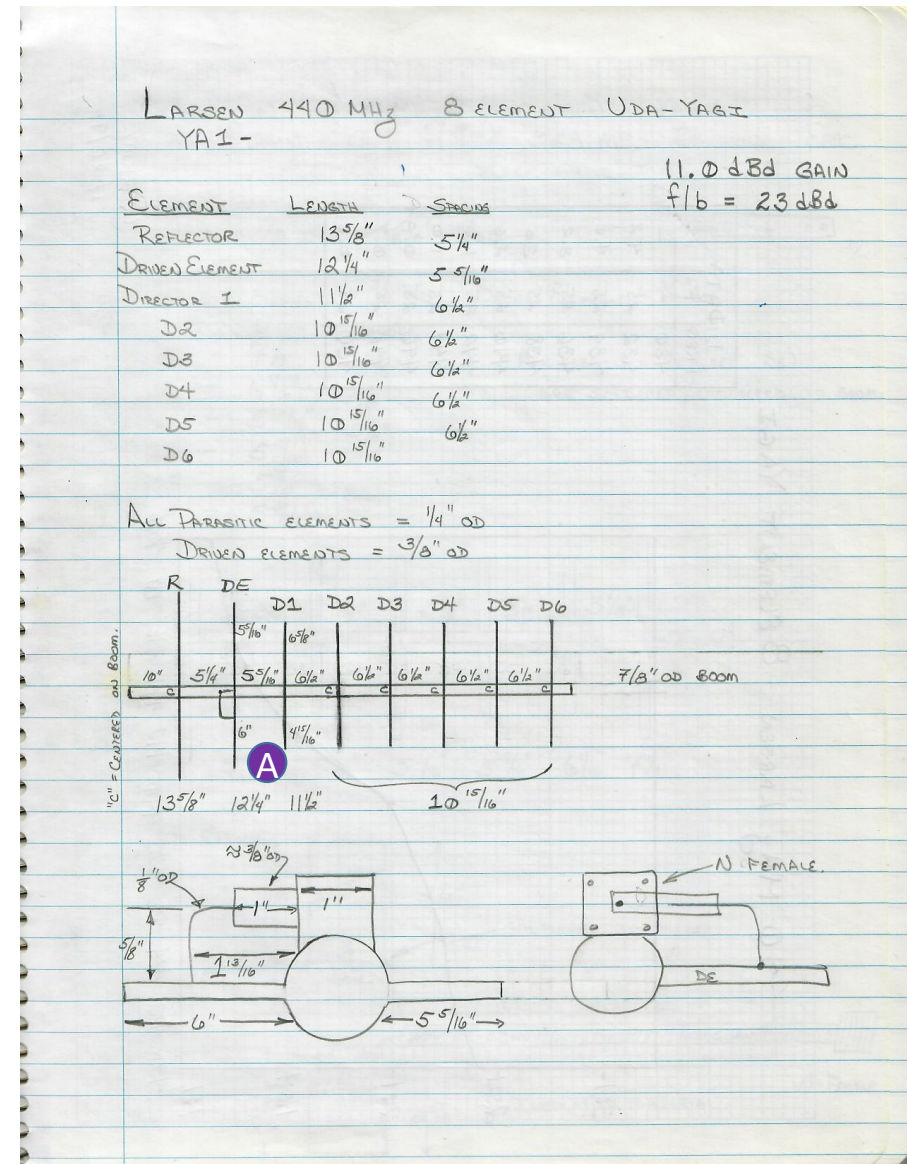 LARSEN 440 MHz 8 ELEMENT UDA-YAGI
YA1-
11.0 dBd GAIN
f/b = 23 dBd
ELEMENT LENGTH SPACING
REFLECTOR 13 5/8"
5 1/4"
DRIVEN ELEMENT 12 1/4"
5 5/16"
DIRECTOR 1 11 1/2"
6 1/2"
D2 10 15/16"
6 1/2"
D3 10 15/16"
6 1/2"
D4 10 15/16"
6 1/2"
D5 10 15/16"
6 1/2"
D6 10 15/16"
ALL PARASITIC ELEMENTS = 1/4" OD
DRIVEN ELEMENTS = 3/8" OD
R DE
D1 D2 D3 D4 D5 D6
5 5/16" 6 5/8"
10" 5 1/4" 5 5/16" 6 1/2" 6 1/2" 6 1/2" 6 1/2" 6 1/2" 7/8" OD BOOM
C C C C C C
6" 4 15/16"
A
"C" = CENTERED ON BOOM.
13 5/8" 12 1/4" 11 1/2" 10 15/16"
≈ 3/8" OD
1/8" OD
N FEMALE.
1" 1"
5/8"
1 13/16"
DE
6" 5 5/16"